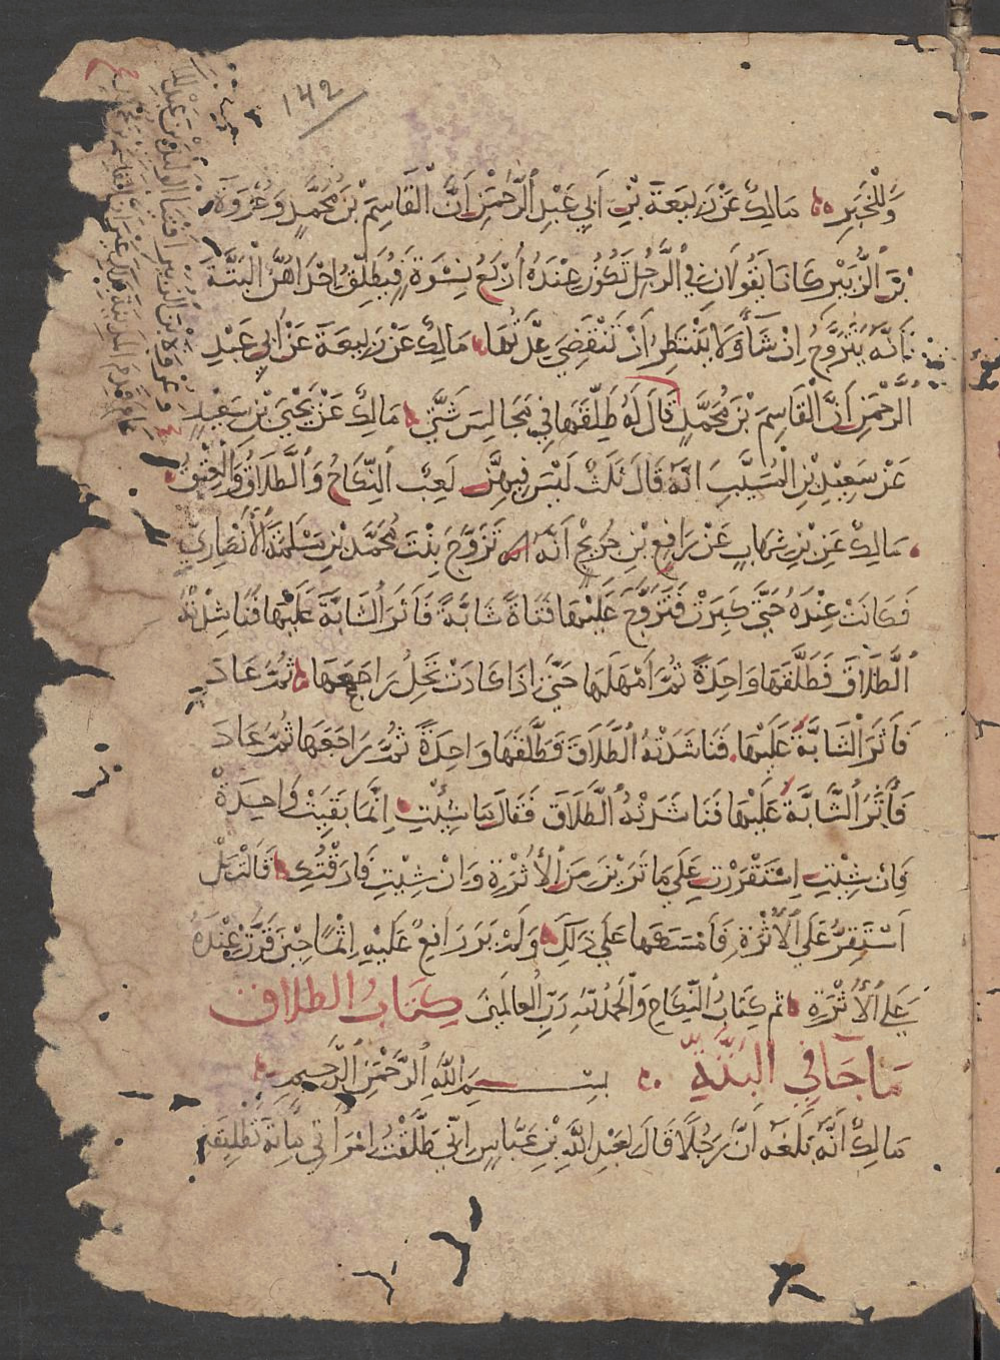 ١٤٢
وَلْتُخْبِرِهِ مَالِكٌ عَنْ رَبِيعَةَ بْنِ أَبِي عَبْدِ الرَّحْمٰنِ أَنَّ الْقَاسِمَ بْنَ مُحَمَّدٍ وَعُرْوَةَ
بْنَ الزُّبَيْرِ كَانَا يَقُولَانِ فِي الرَّجُلِ تَكُونُ عِنْدَهُ أَرْبَعُ نِسْوَةٍ فَيُطَلِّقُ إِحْدَاهُنَّ الْبَتَّةَ
أَنَّهُ يَتَزَوَّجُ إِنْ شَاءَ وَلَا يَنْتَظِرُ أَنْ تَنْقَضِيَ عِدَّتُهَا مَالِكٌ عَنْ رَبِيعَةَ عَنْ أَبِي عَبْدِ
الرَّحْمٰنِ أَنَّ الْقَاسِمَ بْنَ مُحَمَّدٍ قَالَ لَهُ طَلِّقْهَا فِي مَجَالِسَ شَتَّى مَالِكٌ عَنْ يَحْيَى بْنِ سَعِيدٍ
عَنْ سَعِيدِ بْنِ الْمُسَيَّبِ أَنَّهُ قَالَ ثَلَثٌ لَيْسَ فِيهِنَّ لَعِبٌ النِّكَاحُ وَالطَّلَاقُ وَالْعِتْقُ
مَالِكٌ عَنِ بْنِ شِهَابٍ عَنْ رَافِعِ بْنِ خَرِيجٍ أَنَّهُ تَزَوَّجَ بِنْتَ مُحَمَّدِ بْنِ مَسْلَمَةَ الْأَنْصَارِيِّ
فَكَانَتْ عِنْدَهُ حَتَّى كَبِرَتْ فَتَزَوَّجَ عَلَيْهَا فَتَاةً شَابَّةً فَأَثَرَ الشَّابَّةَ عَلَيْهَا فَنَاشَدَتْهُ
الطَّلَاقَ فَطَلَّقَهَا وَاحِدَةً ثُمَّ أَمْهَلَهَا حَتَّى إِذَا كَادَتْ تَحِلُّ رَاجَعَهَا ثُمَّ عَادَ
فَأَثَرَ الشَّابَّةَ عَلَيْهَا فَنَاشَدَتْهُ الطَّلَاقَ فَطَلَّقَهَا وَاحِدَةً ثُمَّ رَاجَعَهَا ثُمَّ عَادَ
فَأَثَرَ الشَّابَّةَ عَلَيْهَا فَنَاشَدَتْهُ الطَّلَاقَ فَقَالَ مَا شِئْتِ إِنَّمَا بَقِيَتْ وَاحِدَةٌ
فَإِنْ شِئْتِ اسْتَقْرَرْتِ عَلَى مَا تَرَيْنَ مَنَ الْأُثْرَةِ وَإِنْ شِئْتِ فَارَقْتُكِ فَقَالَتْ بَلْ
أَسْتَقِرُّ عَلَى الْأُثْرَةِ فَأَمْسَكَهَا عَلَى ذَلِكَ وَلَمْ يَرَ رَافِعٌ عَلَيْهِ إِثْمًا حِينَ قَرَّتْ عِنْدَهُ
عَلَى الْأُثْرَةِ ثم كِتَابُ النِّكَاحِ وَالْحَمْدُ للهِ رَبِّ الْعَالَمِينَ كِتَابُ الطلاق
مَا جَا فِي الْبَتَّةِ بِسْمِ اللهِ الرَّحْمٰنِ الرَّحِيمِ
مَالِكٌ أَنَّهُ بَلَغَهُ أَنَّ رَجُلًا قَالَ لِعَبْدِ اللهِ بْنِ عَبَّاسٍ إِنِّي طَلَّقْتُ امْرَأَتِي مِائَةَ تَطْلِيقَةٍ